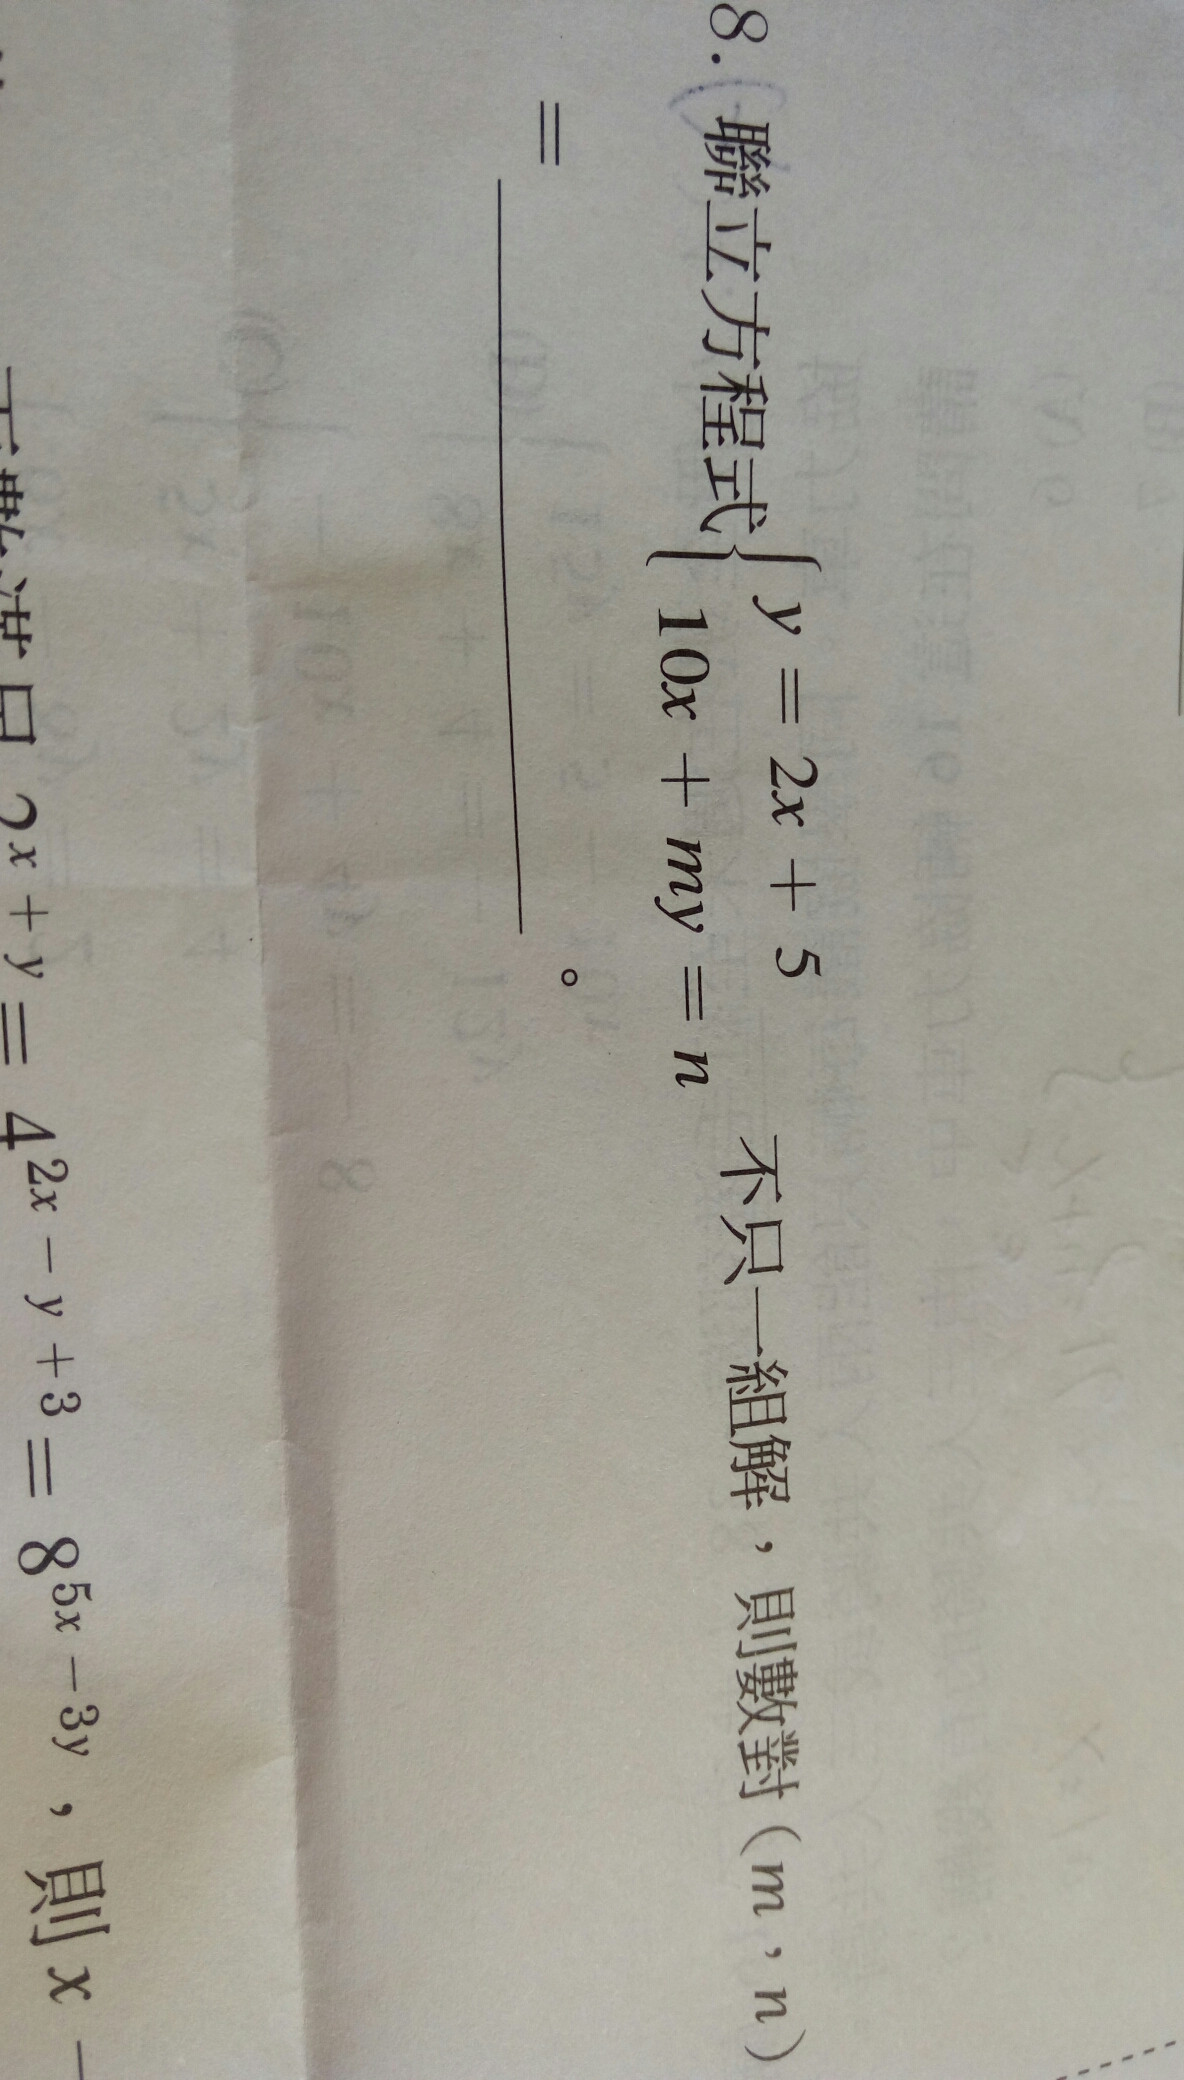 8. 聯立方程式{ y = 2x + 5
10x + my = n 不只一組解，則數對（m，n）
= ________。
2^{x + y} = 4^{2x − y + 3} = 8^{5x − 3y}，則 x −